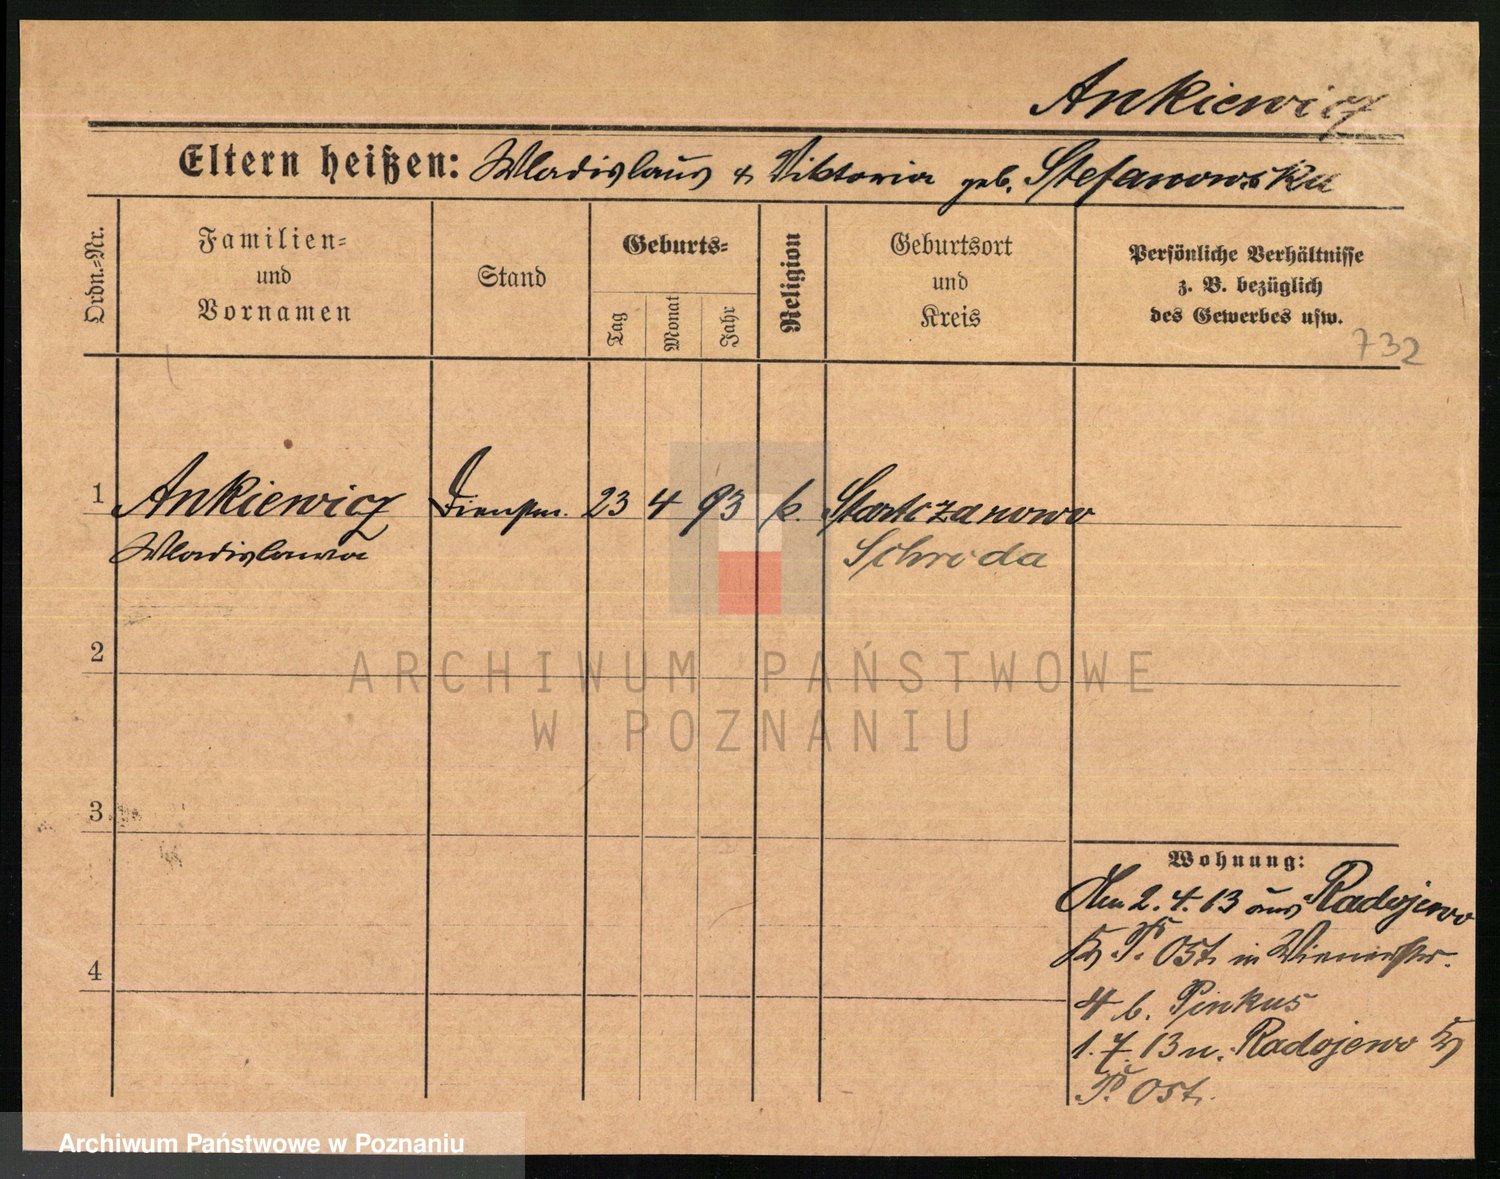 Ankiewicz
Eltern heißen: Wladislaus & Viktoria geb. Stefanowska
Ordn.=Nr.
Familien=
und
Vornamen
Stand
Geburts=
Tag
Monat
Jahr
Religion
Geburtsort
und
Kreis
Persönliche Verhältnisse
z. B. bezüglich
des Gewerbes usw.
732
1 Ankiewicz Dienstm. 23 4 93 k. Starczanowo
Wladislawa Schroda
2
3
4
Wohnung:
Am 2.4.13 aus Radojewo
Kr. P. Ost. in Wienerstr.
4 b. Pinkus
1.7.13 n. Radojewo Kr
P. Ost.
ARCHIWUM PAŃSTWOWE
W POZNANIU
Archiwum Państwowe w Poznaniu